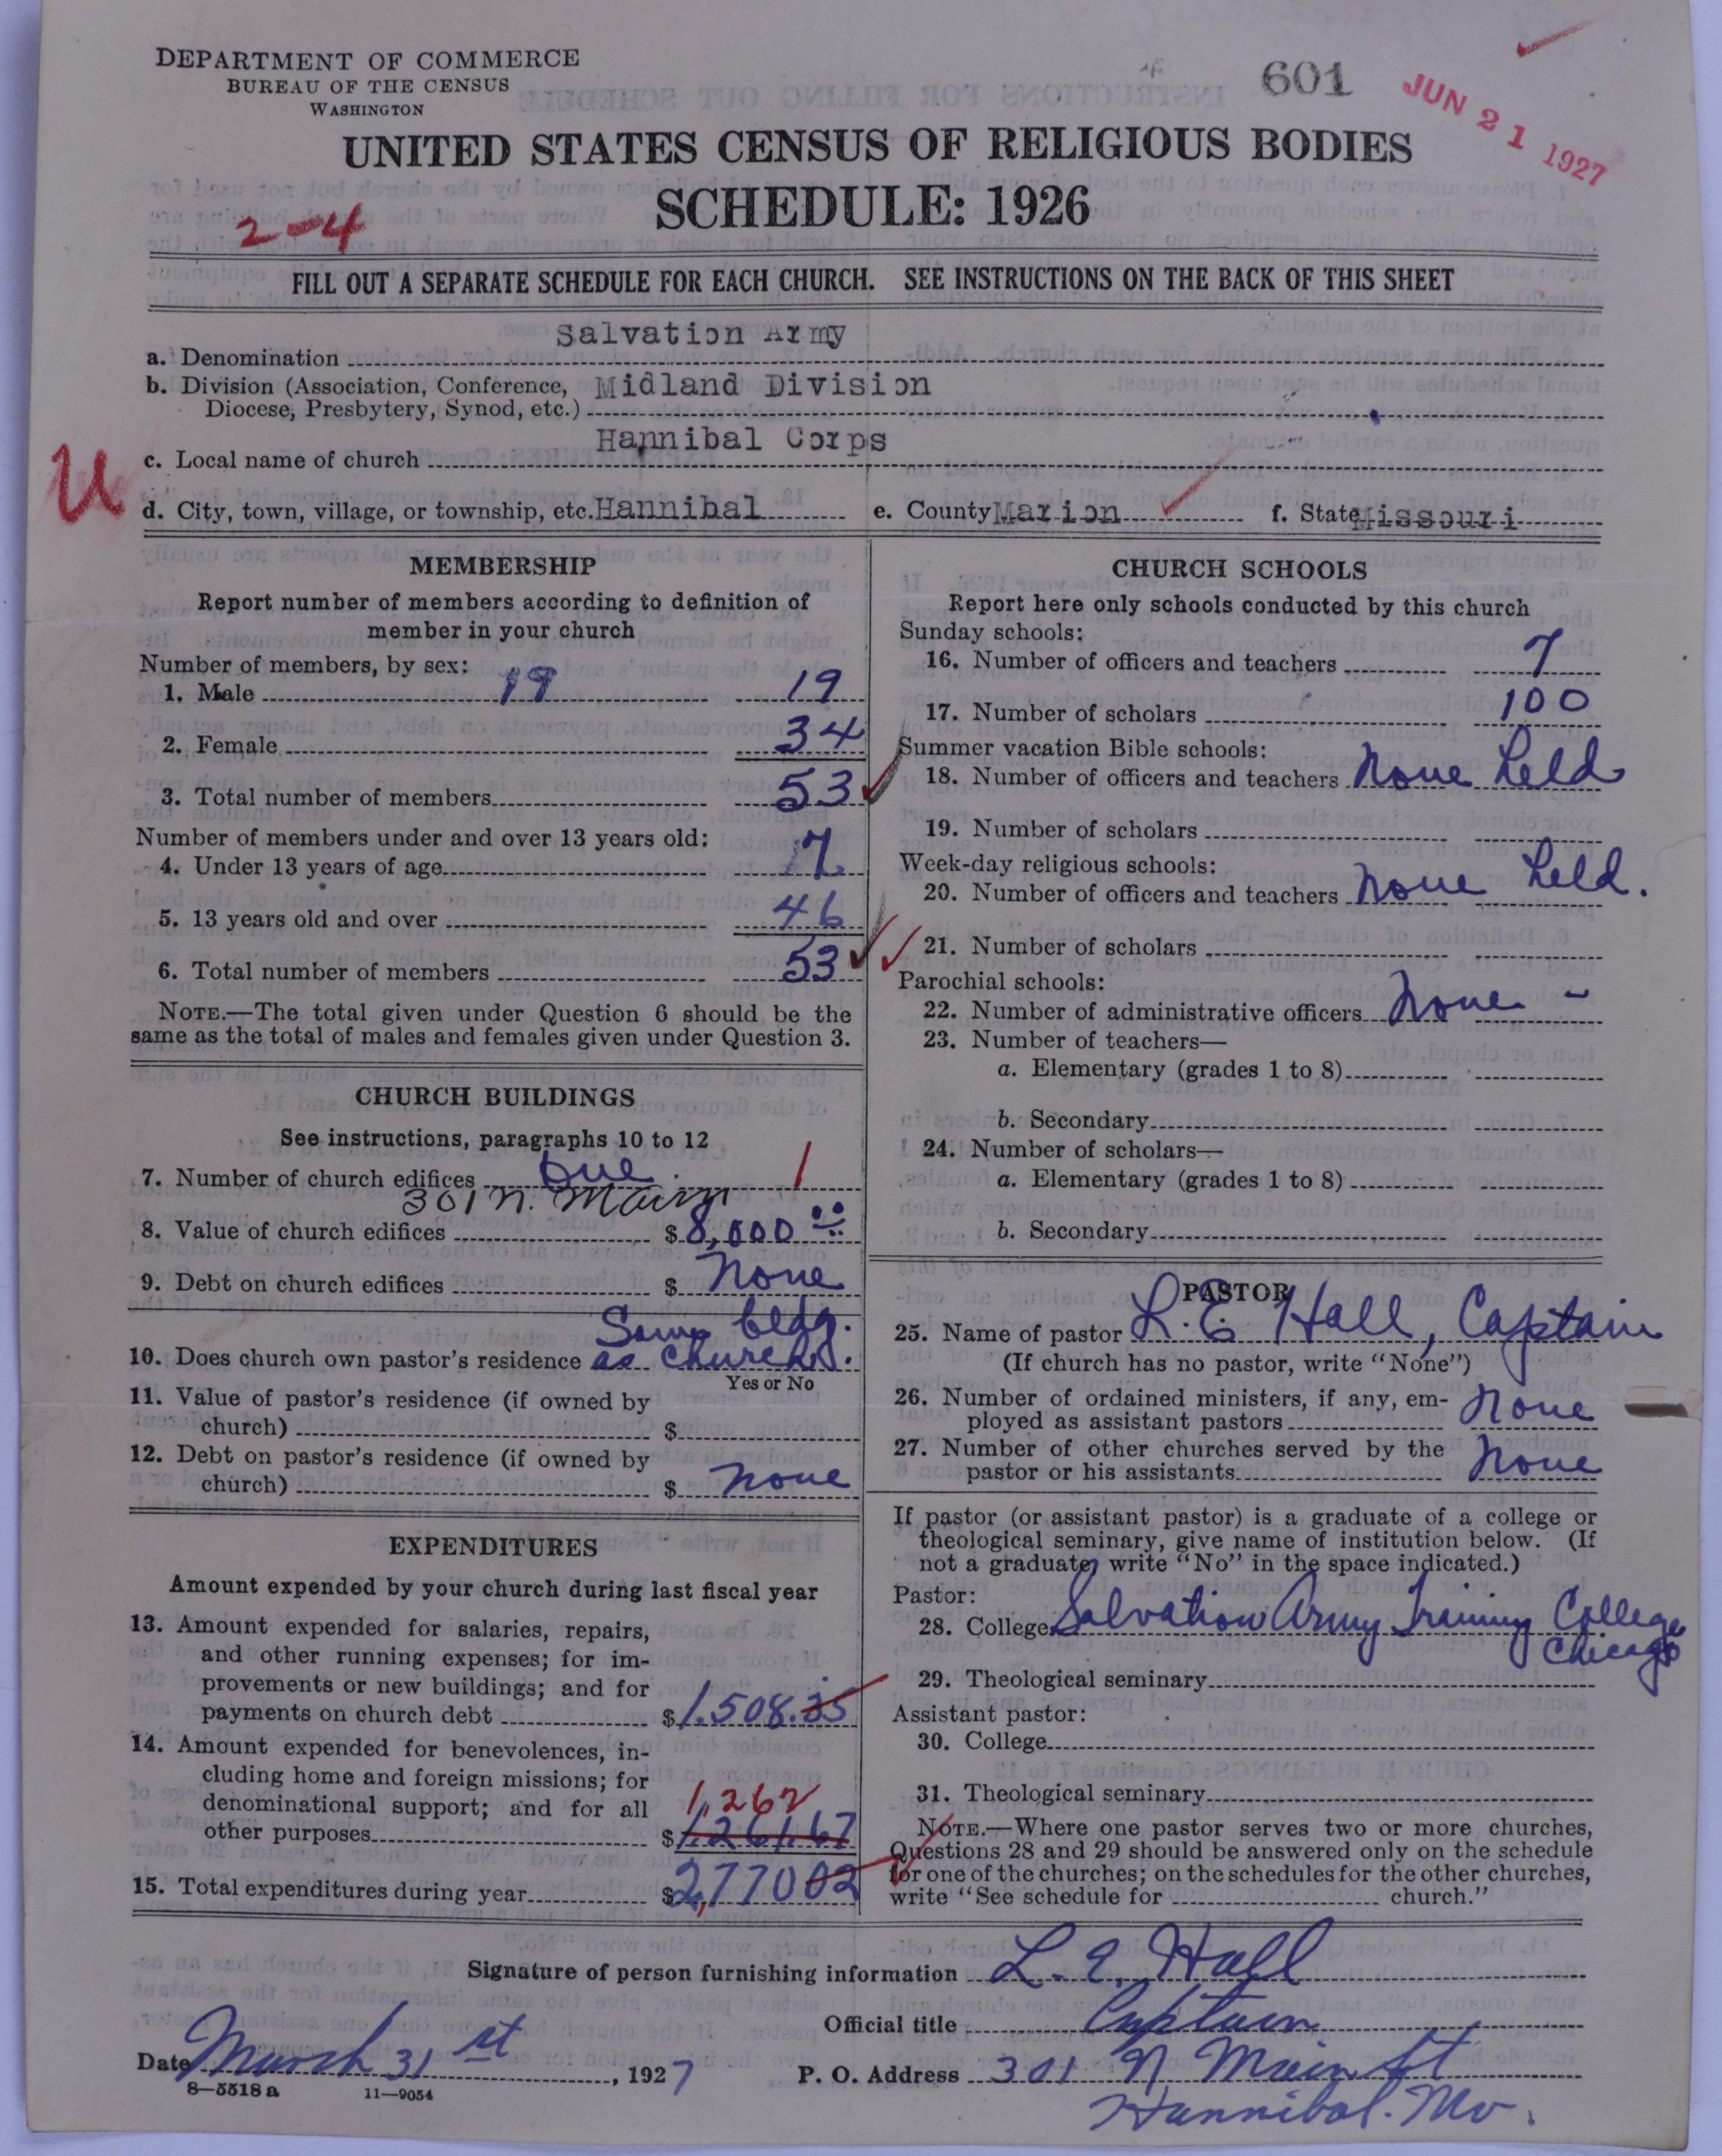 DEPARTMENT OF COMMERCE
BUREAU OF THE CENSUS
WASHINGTON
601
JUN 21 1927
UNITED STATES CENSUS OF RELIGIOUS BODIES
SCHEDULE: 1926
2-4
FILL OUT A SEPARATE SCHEDULE FOR EACH CHURCH. SEE INSTRUCTIONS ON THE BACK OF THIS SHEET
a. Denomination Salvation Army
b. Division (Association, Conference, Midland Division
Diocese, Presbytery, Synod, etc.)
c. Local name of church Hannibal Corps
U
d. City, town, village, or township, etc. Hannibal e. County Marion f. State Missouri
MEMBERSHIP
Report number of members according to definition of
member in your church
Number of members, by sex:
1. Male 19 19
2. Female 34
3. Total number of members 53
Number of members under and over 13 years old:
4. Under 13 years of age 7
5. 13 years old and over 46
6. Total number of members 53
NOTE.—The total given under Question 6 should be the
same as the total of males and females given under Question 3.
CHURCH BUILDINGS
See instructions, paragraphs 10 to 12
7. Number of church edifices One 1
301 N. Main
8. Value of church edifices $ 8,000 00
9. Debt on church edifices $ None
Same bldg.
10. Does church own pastor's residence as church.
Yes or No
11. Value of pastor's residence (if owned by
church) $
12. Debt on pastor's residence (if owned by
church) $ None
EXPENDITURES
Amount expended by your church during last fiscal year
13. Amount expended for salaries, repairs,
and other running expenses; for im-
provements or new buildings; and for
payments on church debt $ 1,508.35
14. Amount expended for benevolences, in-
cluding home and foreign missions; for
denominational support; and for all 1,262
other purposes $ 1,261.67
15. Total expenditures during year $ 2,770 02
CHURCH SCHOOLS
Report here only schools conducted by this church
Sunday schools:
16. Number of officers and teachers 7
17. Number of scholars 100
Summer vacation Bible schools:
18. Number of officers and teachers None held
19. Number of scholars
Week-day religious schools:
20. Number of officers and teachers None held.
21. Number of scholars
Parochial schools:
22. Number of administrative officers None -
23. Number of teachers—
a. Elementary (grades 1 to 8)
b. Secondary
24. Number of scholars—
a. Elementary (grades 1 to 8)
b. Secondary
PASTOR
25. Name of pastor L. E. Hall, Captain
(If church has no pastor, write "None")
26. Number of ordained ministers, if any, em-
ployed as assistant pastors None
27. Number of other churches served by the
pastor or his assistants None
If pastor (or assistant pastor) is a graduate of a college or
theological seminary, give name of institution below. (If
not a graduate, write "No" in the space indicated.)
Pastor:
28. College Salvation Army Training College
Chicago
29. Theological seminary
Assistant pastor:
30. College
31. Theological seminary
NOTE.—Where one pastor serves two or more churches,
Questions 28 and 29 should be answered only on the schedule
for one of the churches; on the schedules for the other churches,
write "See schedule for church."
Signature of person furnishing information L. E. Hall
Official title Captain
Date March 31st, 1927 P. O. Address 301 N Main St
8—5518 a 11—9054
Hannibal. Mo.